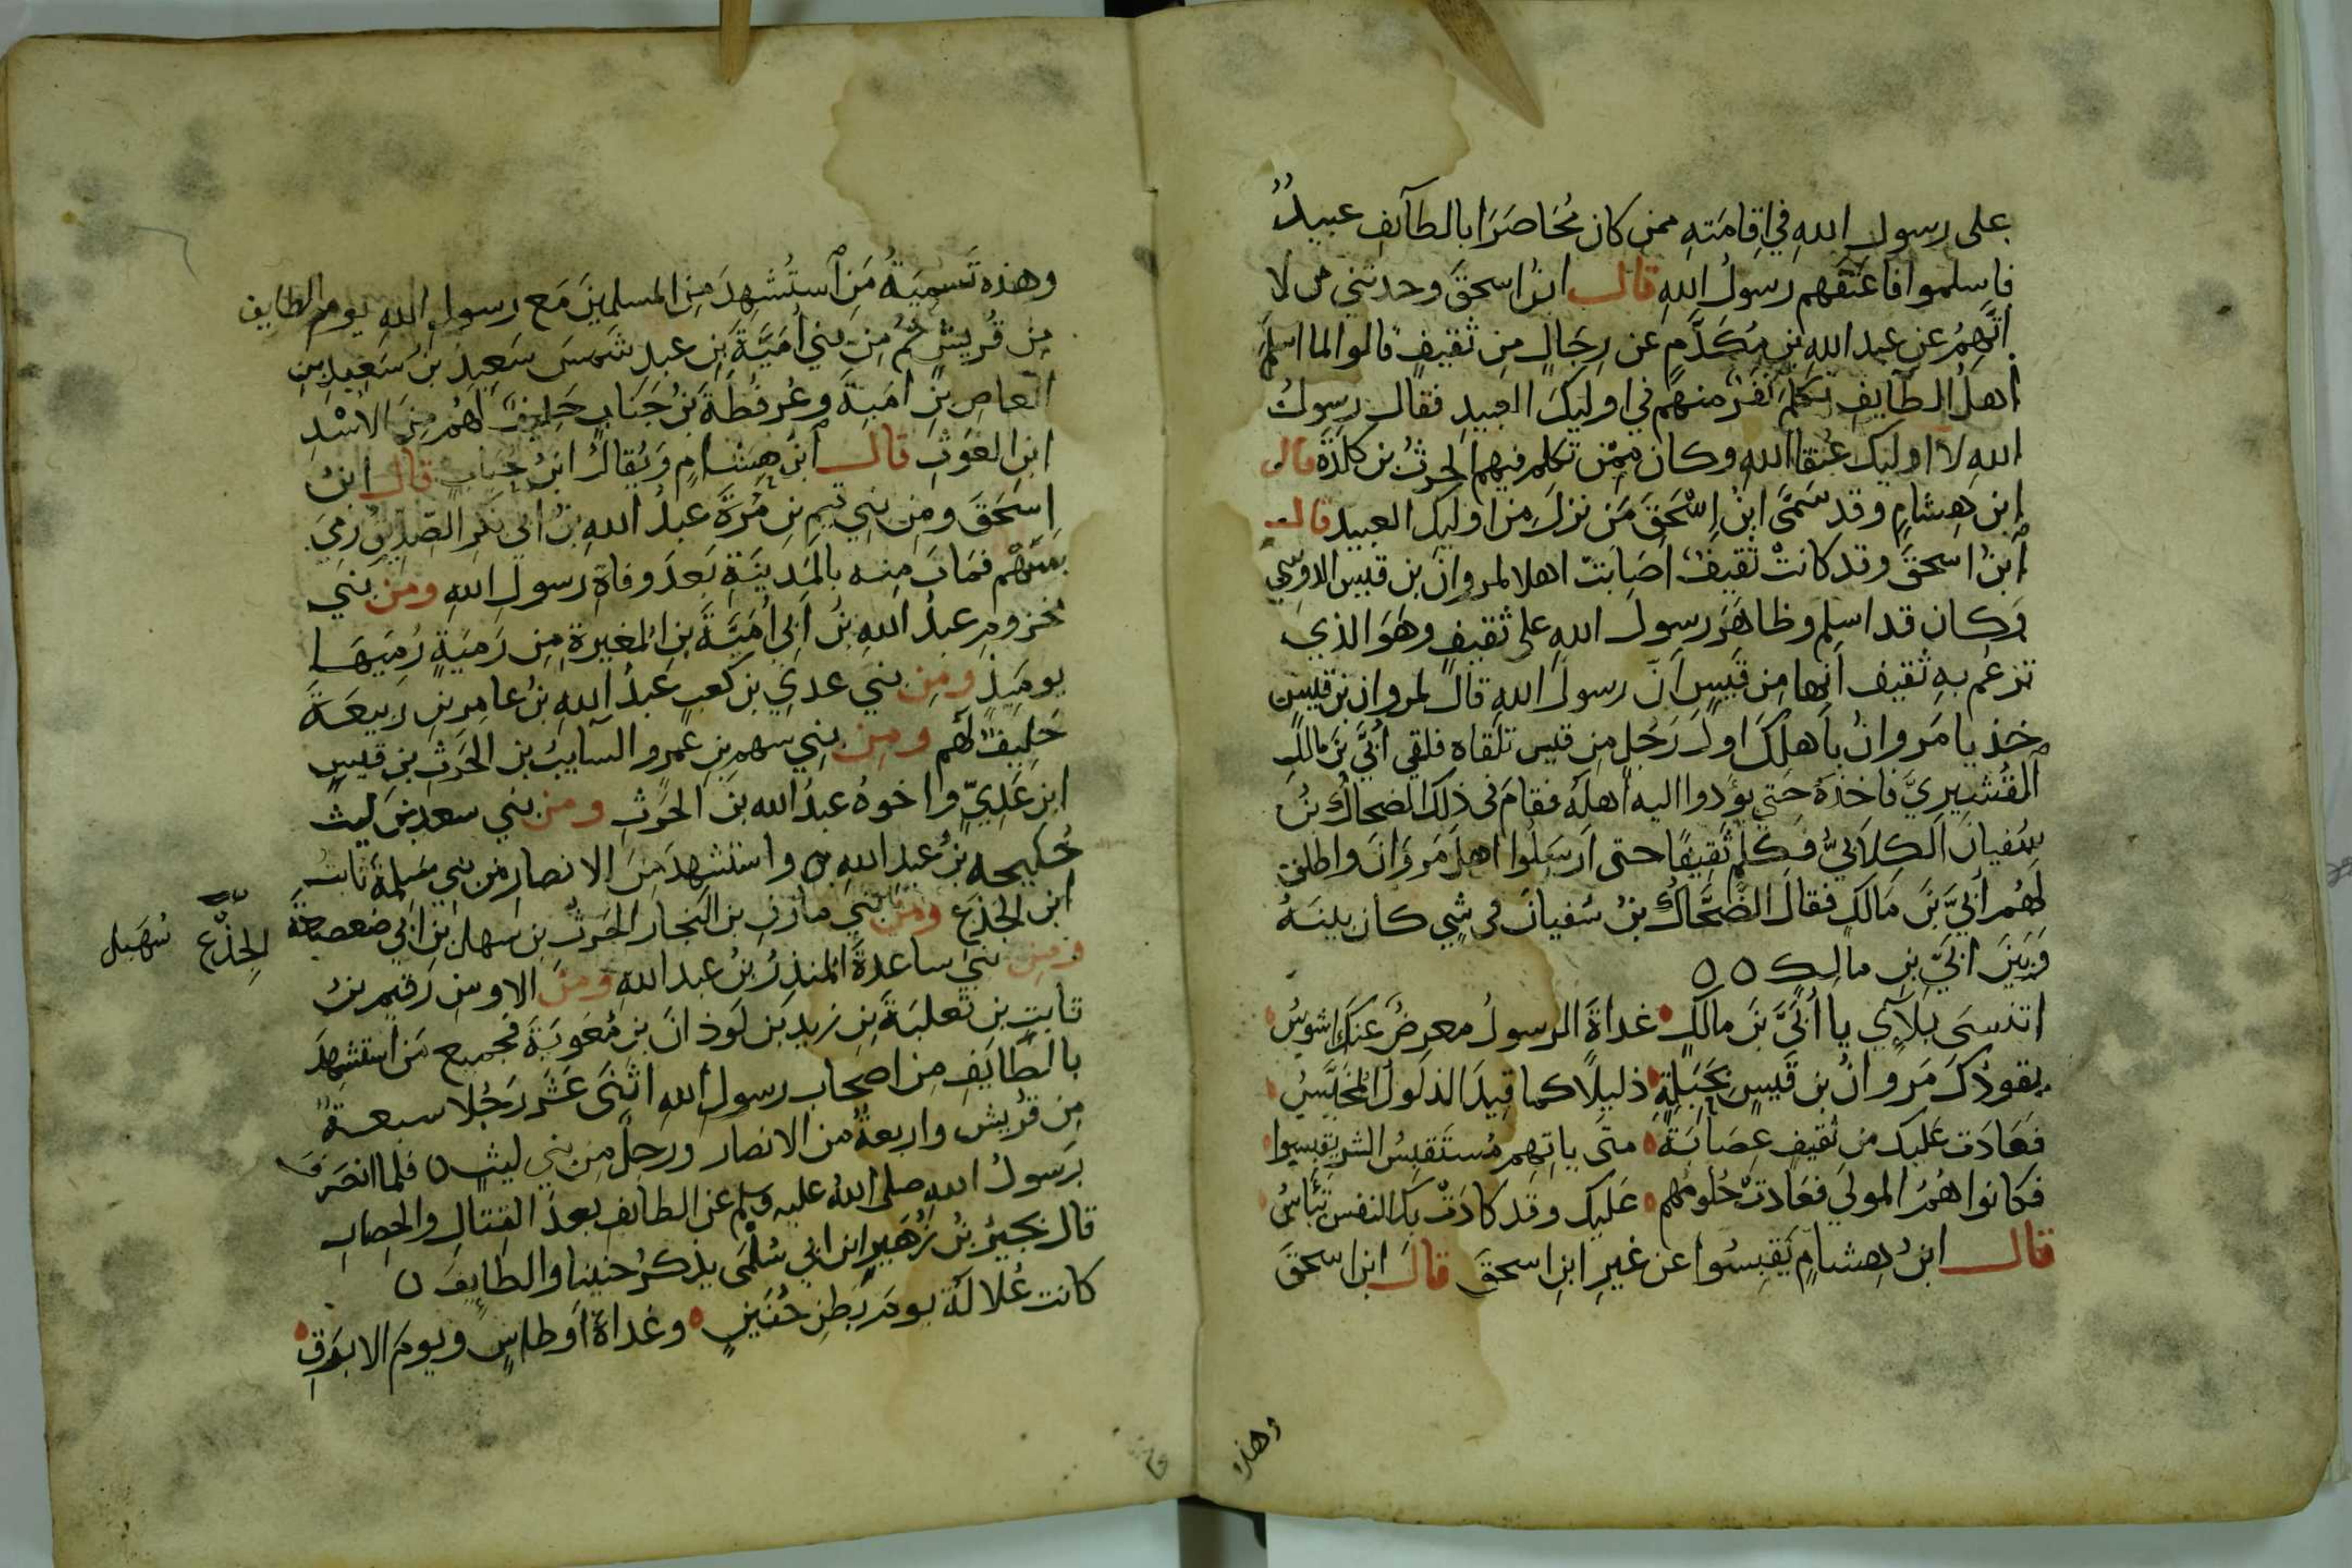 على رسول الله في اقامته ممن كان مُحَاصَرًا بالطآئف عبيدٌ
فاسلموا فاعتقهم رسولُ اللهِ قال ابنُ اسحقَ وحدثني من لا
اتهمُ عن عبد اللهِ بنِ مُكَدَّمٍ عن رِجَالٍ مِن ثقيفٍ قالوا لما اسلم
اهلُ الطآيفِ تكلمَ نَفَرٌ منهم في اوليكَ العبيدِ فقال رسولُ
اللهِ لا اوليك عُتقا اللهِ وكان ممَّن تكلم فيهم الحرثُ بن كلدة قال
ابن هِشامٍ وقد سَمَّى ابنُ اِسْحَقَ مَن نزلَ مِن اوليك العبيد قال
ابنُ اسحقَ وقد كانتْ ثقيفٌ اصَابَتْ اهلا لمروانَ بن قيس الاوسي
وكان قد اسلم وظاهَرَ رسولَ اللهِ على ثقيفٍ وهَوَ الذي
تزعُم بهِ ثقيف انها مِن قَيسٍ انَّ رسولَ اللهِ قالَ لمروان بن قيسٍ
خذ يا مَروانُ باهلكَ اولَ رَجُلٍ مِن قيس تلقاه فلقي اُبَيَّ بنَ مالكٍ
القُشَيرِيَّ فاخذهُ حَتي يؤدوا اليه اهلَه فقامَ في ذلكَ الضحاكُ بنُ
سُفيانَ الكِلابيُّ فكلم ثقِيفًا حتى ارسَلُوا اهلَ مَروَانَ واطلق
لهُم اُبَيَّ بنَ مَالكٍ فقالَ الضَّحَّاكُ بنُ سُفيانَ في شيٍ كان بينَهُ
وَبَينَ ابَيِّ بنِ مالكٍ ٥٥
اتنسى بلآي يا اُبَيَّ بنَ مالكٍ ۰ غداةَ الرسولُ معرِضٌ عنكَ اشوسُ
يقودُكَ مَروانُ بن قَيسٍ بحَبلهِ ۰ ذليلًا كما قِيدَ الذلُولُ المُخَيَّسُ
فعَادَت عليك من ثقيفٍ عِصَابَةٌ ۰ متَى ياتِهم مُستَقبِسُ الشرِّ يقبسوا
فكانوا هُمُ المولي فعَادتْ حُلومُهم ۰ عَليكَ وقد كادَتْ بكَ النفسُ تيأسُ
قال ابنُ هِشامٍ يَقبِسُوا عن غيرِ ابنِ اسحقَ قالَ ابن اسحقَ
وهذه
وهذه تَسمِيَةُ مَنِ استُشهِدَ مِن المسلمينَ مَع رسولِ اللهِ يوم الطايف
مِن قُريشٍ ثم مِن بني اُمَيَّةَ بنِ عبدِ شَمسٍ سَعِيدُ بنُ سَعيدِ بنِ
العاصِ بنِ امَيةَ وعُرفُطَةُ بنُ جَنَابٍ حَليفٌ لهُم مِن الاسْدِ
ابنِ الغَوثِ قال ابنُ هِشامٍ وَيُقالُ ابنُ حُبابٍ قال ابنُ
اِسحَقَ ومِن بَنِي تيمِ بنِ مُرَّةَ عبدُ اللهِ بنُ ابي بكرٍ الصّدّيق رُمِيَ
بسَهْمٍ فمَاتَ مِنه بالمَدِينَةِ بَعدَ وفاةِ رسولِ اللهِ ومن بني
مخزومٍ عبدُ اللهِ بنُ اَبِي اُمَيَّةَ بنِ المُغيرةِ مِن رَميَةٍ رُمِيَهَا
يوميذٍ ومن بني عديِّ بن كعبٍ عَبدُ اللهِ بنُ عامِرِ بنِ رَبيعَةَ
حَليفٌ لهُم ومن بني سهمِ بنِ عَمرٍو السآيبُ بن الحَرثِ بنِ قيسٍ
ابن عَدِيٍّ واخوهُ عبدُ الله بن الحَرثِ ومن بني سعدِ بنِ ليث
جُليحه بنُ عبد اللهِ ٥ واستُشهِدَ مِنَ الانصارِ من بني سَلِمةَ ثابتُ
ابن الجذَعِ ومن بني مازنِ بن النجار الحَرثُ بن سَهلِ بنِ ابي صَعصَعَةَ
الجِذْع
سُهَيل
ومن بني ساعدةَ المنذِرُ بنُ عبد اللهِ ومنَ الاوسِ رُقيمُ بنُ
ثابتِ بن ثَعلَبَةَ بنِ زيدِ بن لَوذانَ بنِ مُعَوِيَةَ فجميع مَن استُشهِدَ
بالطَّايفِ مِن اصحابِ رسولِ اللهِ اثنَى عَشَر رَجُلا سبعةٌ
مِن قُريشٍ واربعةٌ من الانصار ورجلٌ مِن بني ليثٍ ٥ فلما انصَرَفَ
رسولُ اللهِ صلى اللهُ عليه وسلم عن الطائفِ بعدَ القِتالِ والحِصارِ
قال بُجَيرُ بنُ زُهَيرِ ابن ابي سُلْمَى يذكرُ حُنينا والطايفَ ٥
كانت عُلالَةَ يومَ بَطنِ حُنَينٍ ۰ وغداةَ اوطاسٍ ويومَ الابرَقِ ۰